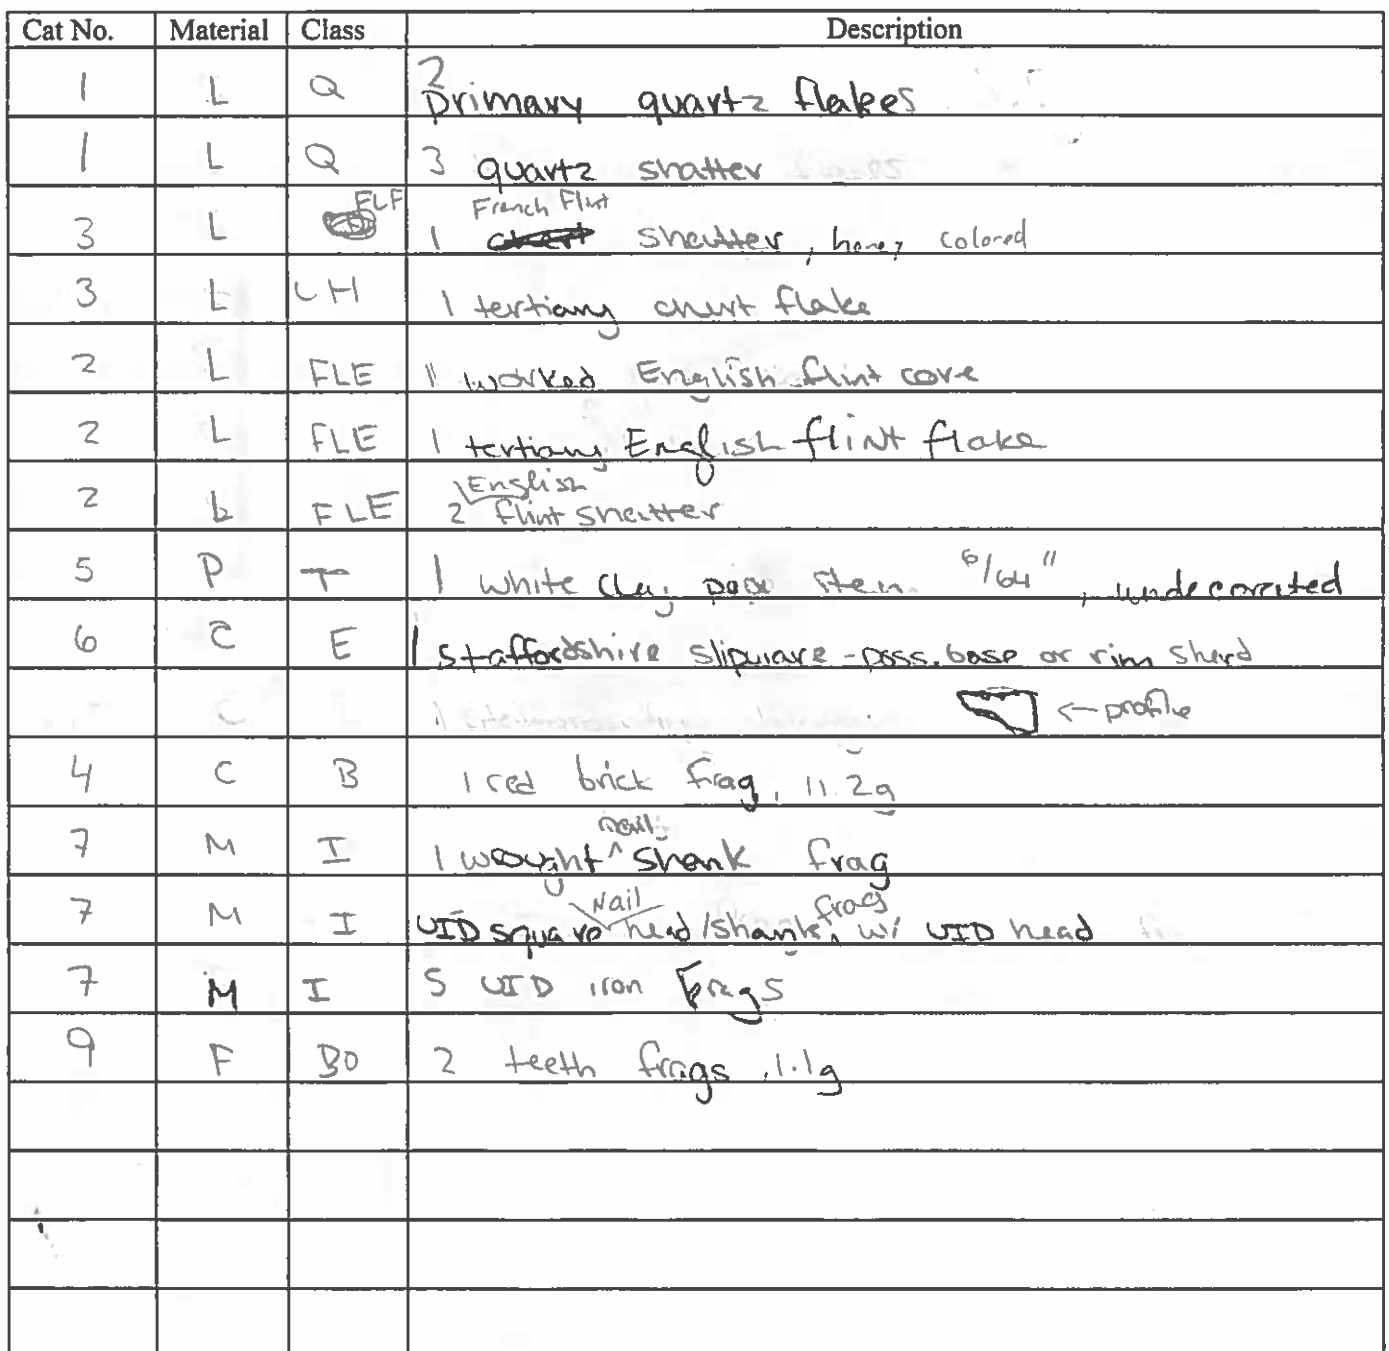 Cat No. Material Class Description
1 L Q 2 primary quartz flakes
1 L Q 3 quartz shatter
3 L FLF 1 French Flint shatter, honey colored
3 L CH 1 tertiary chert flake
2 L FLE 1 worked English flint core
2 L FLE 1 tertiary English flint flake
2 L FLE 2 English flint shatter
5 P T 1 white clay pipe stem /64", undecorated
6 C E 1 Staffordshire slipware - poss. base or rim sherd
C ← profile
4 C B 1 red brick frag, 11.2g
7 M I 1 wrought nail shank frag
7 M I UID square Nail head/shank frag, w/ UID head
7 M I 5 UID iron frags
9 F BO 2 teeth frags, 1.1g